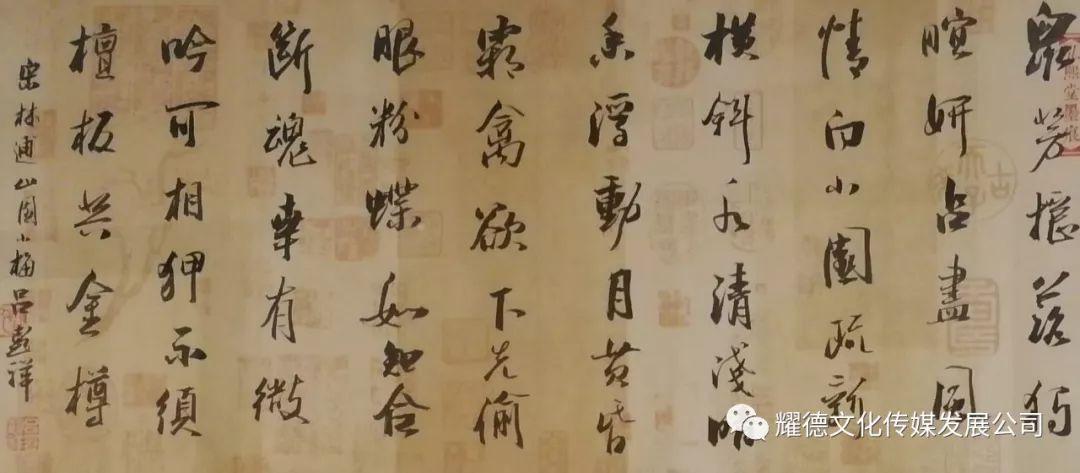 衆芳摇落独
暄妍占盡風
情向小園疏影
横斜水清淺暗
香浮動月黄昏
霜禽欲下先偷
眼粉蝶如知合
斷魂幸有微
吟可相狎不須
檀板共金樽
宋林逋山園小梅吕祥
耀德文化传媒发展公司